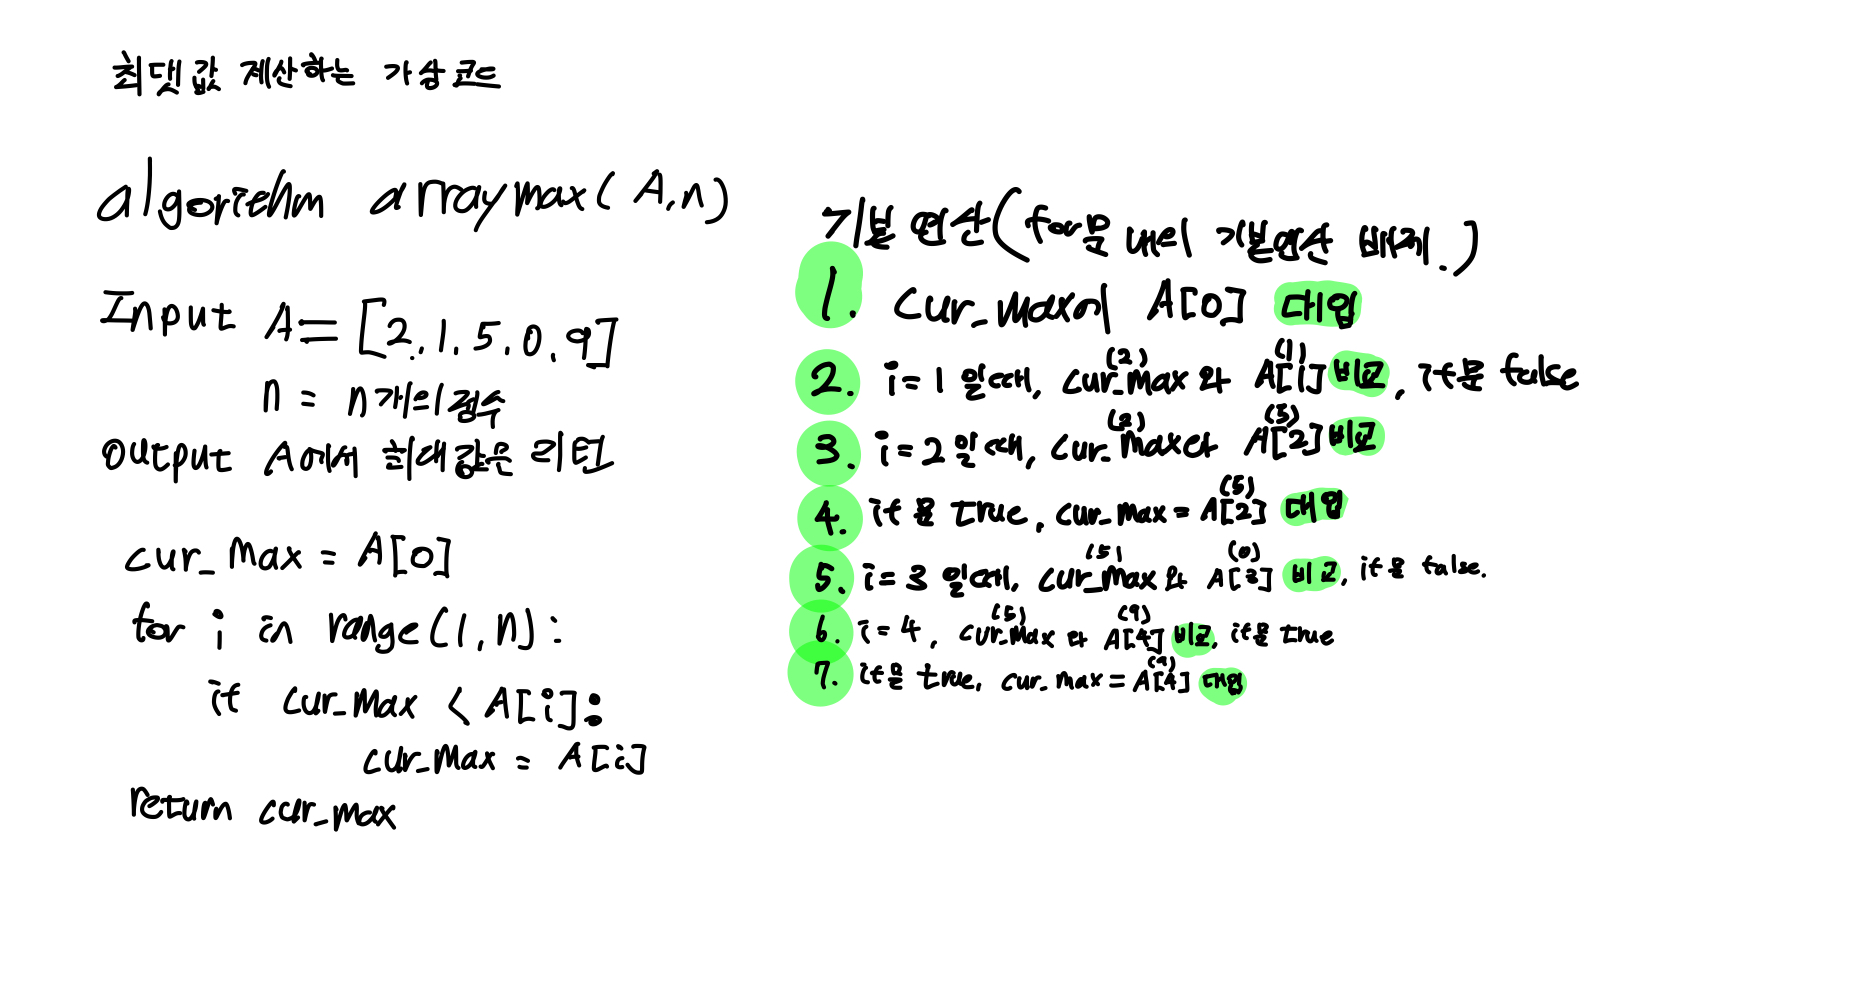 최댓값 계산하는 가상코드
algorithm arraymax(A,n)
Input A = [2, 1, 5, 0, 9]
n = n개의 점수
output A에서 최대값은 리턴
cur_max = A[0]
for i in range(1,n):
if cur_max < A[i]:
cur_max = A[i]
return cur_max
기본연산(for문 내의 기본연산 배제.)
1. cur_max에 A[0] 대입
(2) (1)
2. i=1 일때, cur_max와 A[1] 비교, if문 false
(2) (5)
3. i=2 일때, cur_max와 A[2] 비교
(5)
4. if문 true, cur_max = A[2] 대입
(5) (0)
5. i=3 일때, cur_max와 A[3] 비교, if문 false.
(5) (9)
6. i=4, cur_max와 A[4] 비교, if문 true
(9)
7. if문 true, cur_max = A[4] 대입